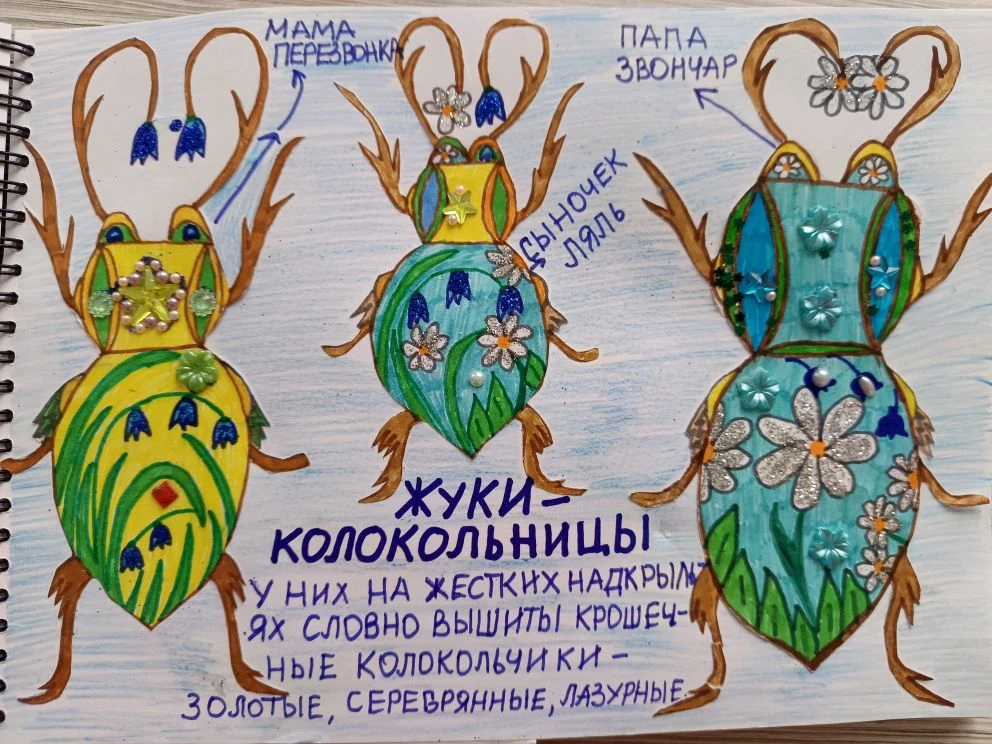 МАМА
ПЕРЕЗВОНКА
ПАПА
ЗВОНЧАР
СЫНОЧЕК
ЛЯЛЬ
ЖУКИ-
КОЛОКОЛЬНИЦЫ
У НИХ НА ЖЕСТКИХ НАДКРЫЛЬ-
ЯХ СЛОВНО ВЫШИТЫ КРОШЕЧ-
НЫЕ КОЛОКОЛЬЧИКИ-
ЗОЛОТЫЕ, СЕРЕБРЯННЫЕ, ЛАЗУРНЫЕ.